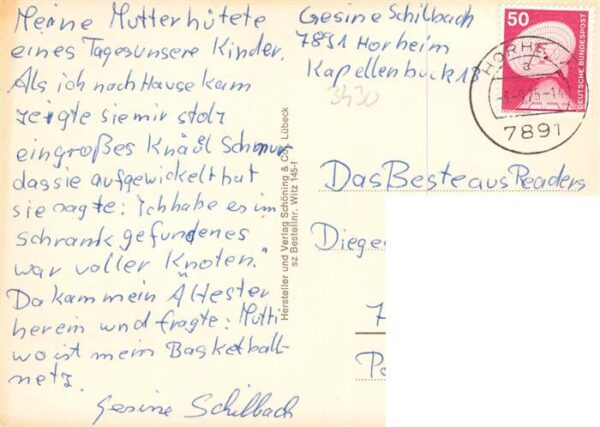 Meine Mutter hütete
eines Tages unsere Kinder.
Als ich nach Hause kam
zeigte sie mir stolz
ein großes Knäul Schnur
das sie aufgewickelt hat
sie sagte: Ich habe es im
schrank gefunden es
war voller Knoten."
Da kam mein Ältester
herein und fragte: Mutti
wo ist mein Basketball-
netz.
Gesine Schilbach
Hersteller und Verlag Schöning & Co., Lübeck
sz Bestellnr. Witz 145-f
Gesine Schilbach
7891 Horheim
Kapellenbuck 13
3430
50
DEUTSCHE BUNDESPOST
HORHE
a
7891
Das Beste aus Readers
Dieges
7